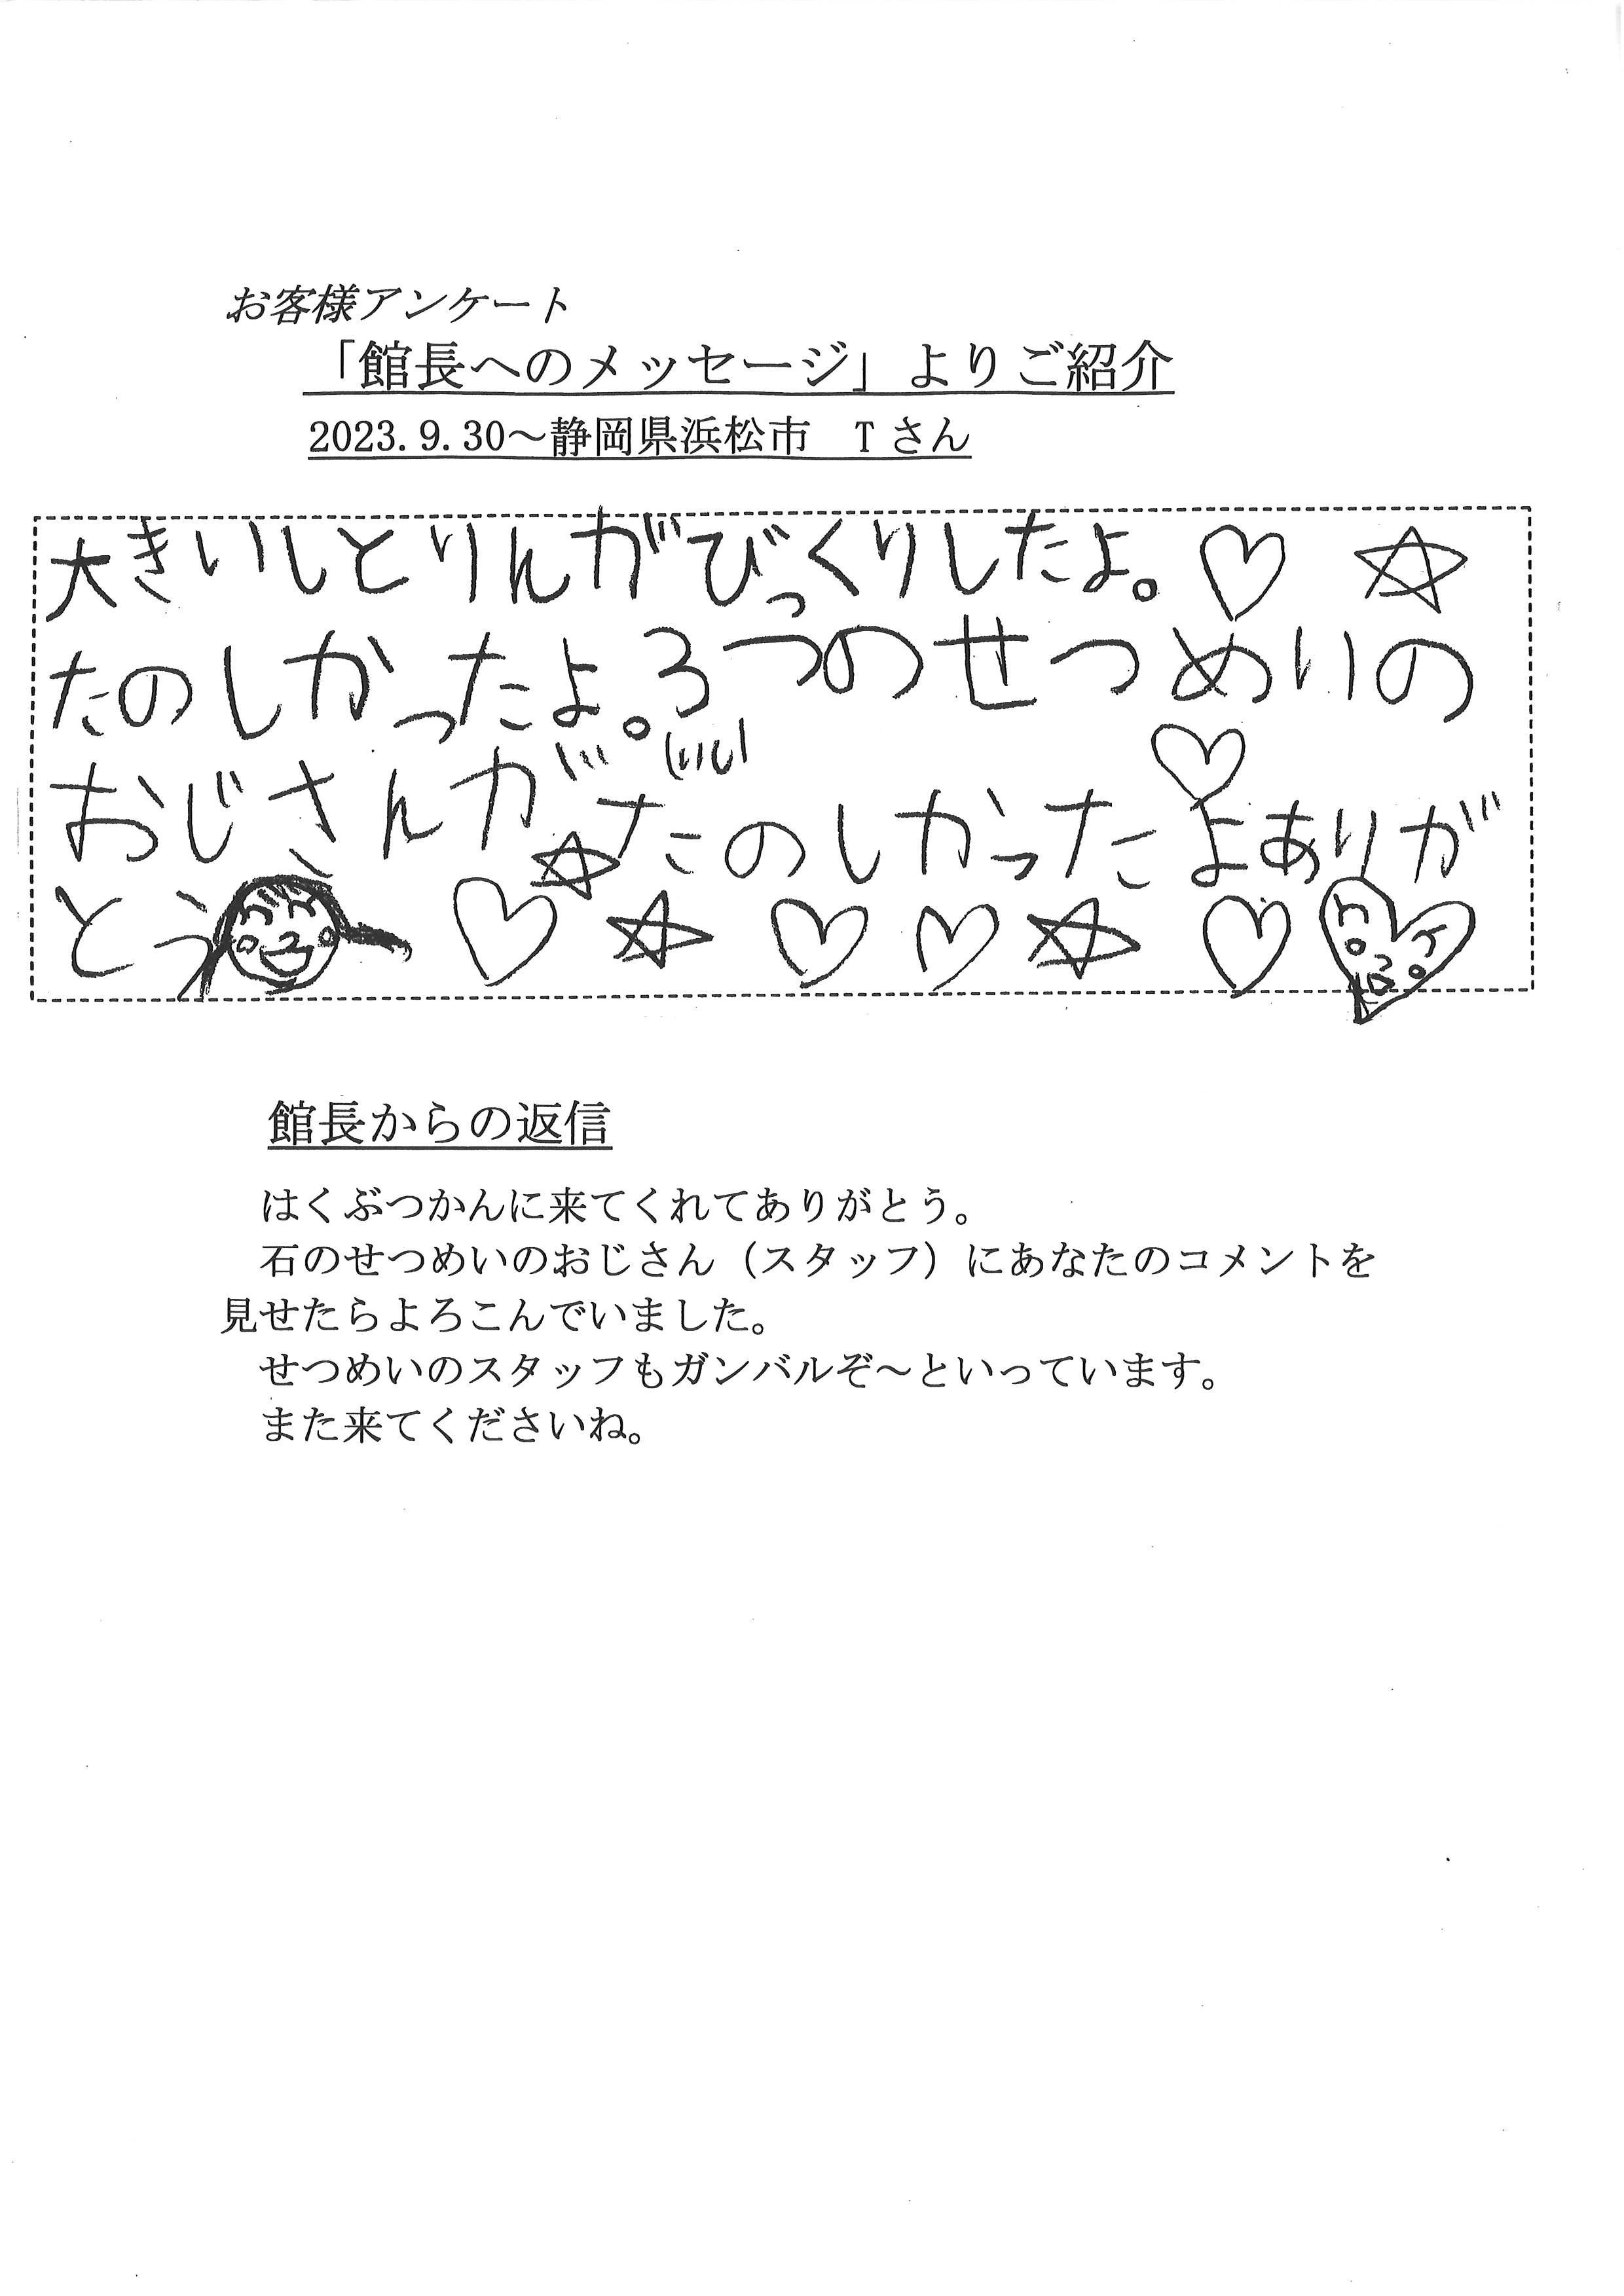 お客様アンケート
「館長へのメッセージ」よりご紹介
2023.9.30～静岡県浜松市　Tさん
大きいしとりんがびっくりしたよ。
たのしかったよ。3つのせつめいの
おじさんが たのしかったよありが
とう
館長からの返信
はくぶつかんに来てくれてありがとう。
石のせつめいのおじさん（スタッフ）にあなたのコメントを
見せたらよろこんでいました。
せつめいのスタッフもガンバルぞ～といっています。
また来てくださいね。